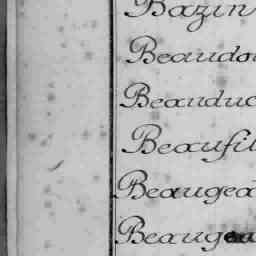 Bazin
Beaudo
Beauduc
Beaufil
Beaugea
Beaugea